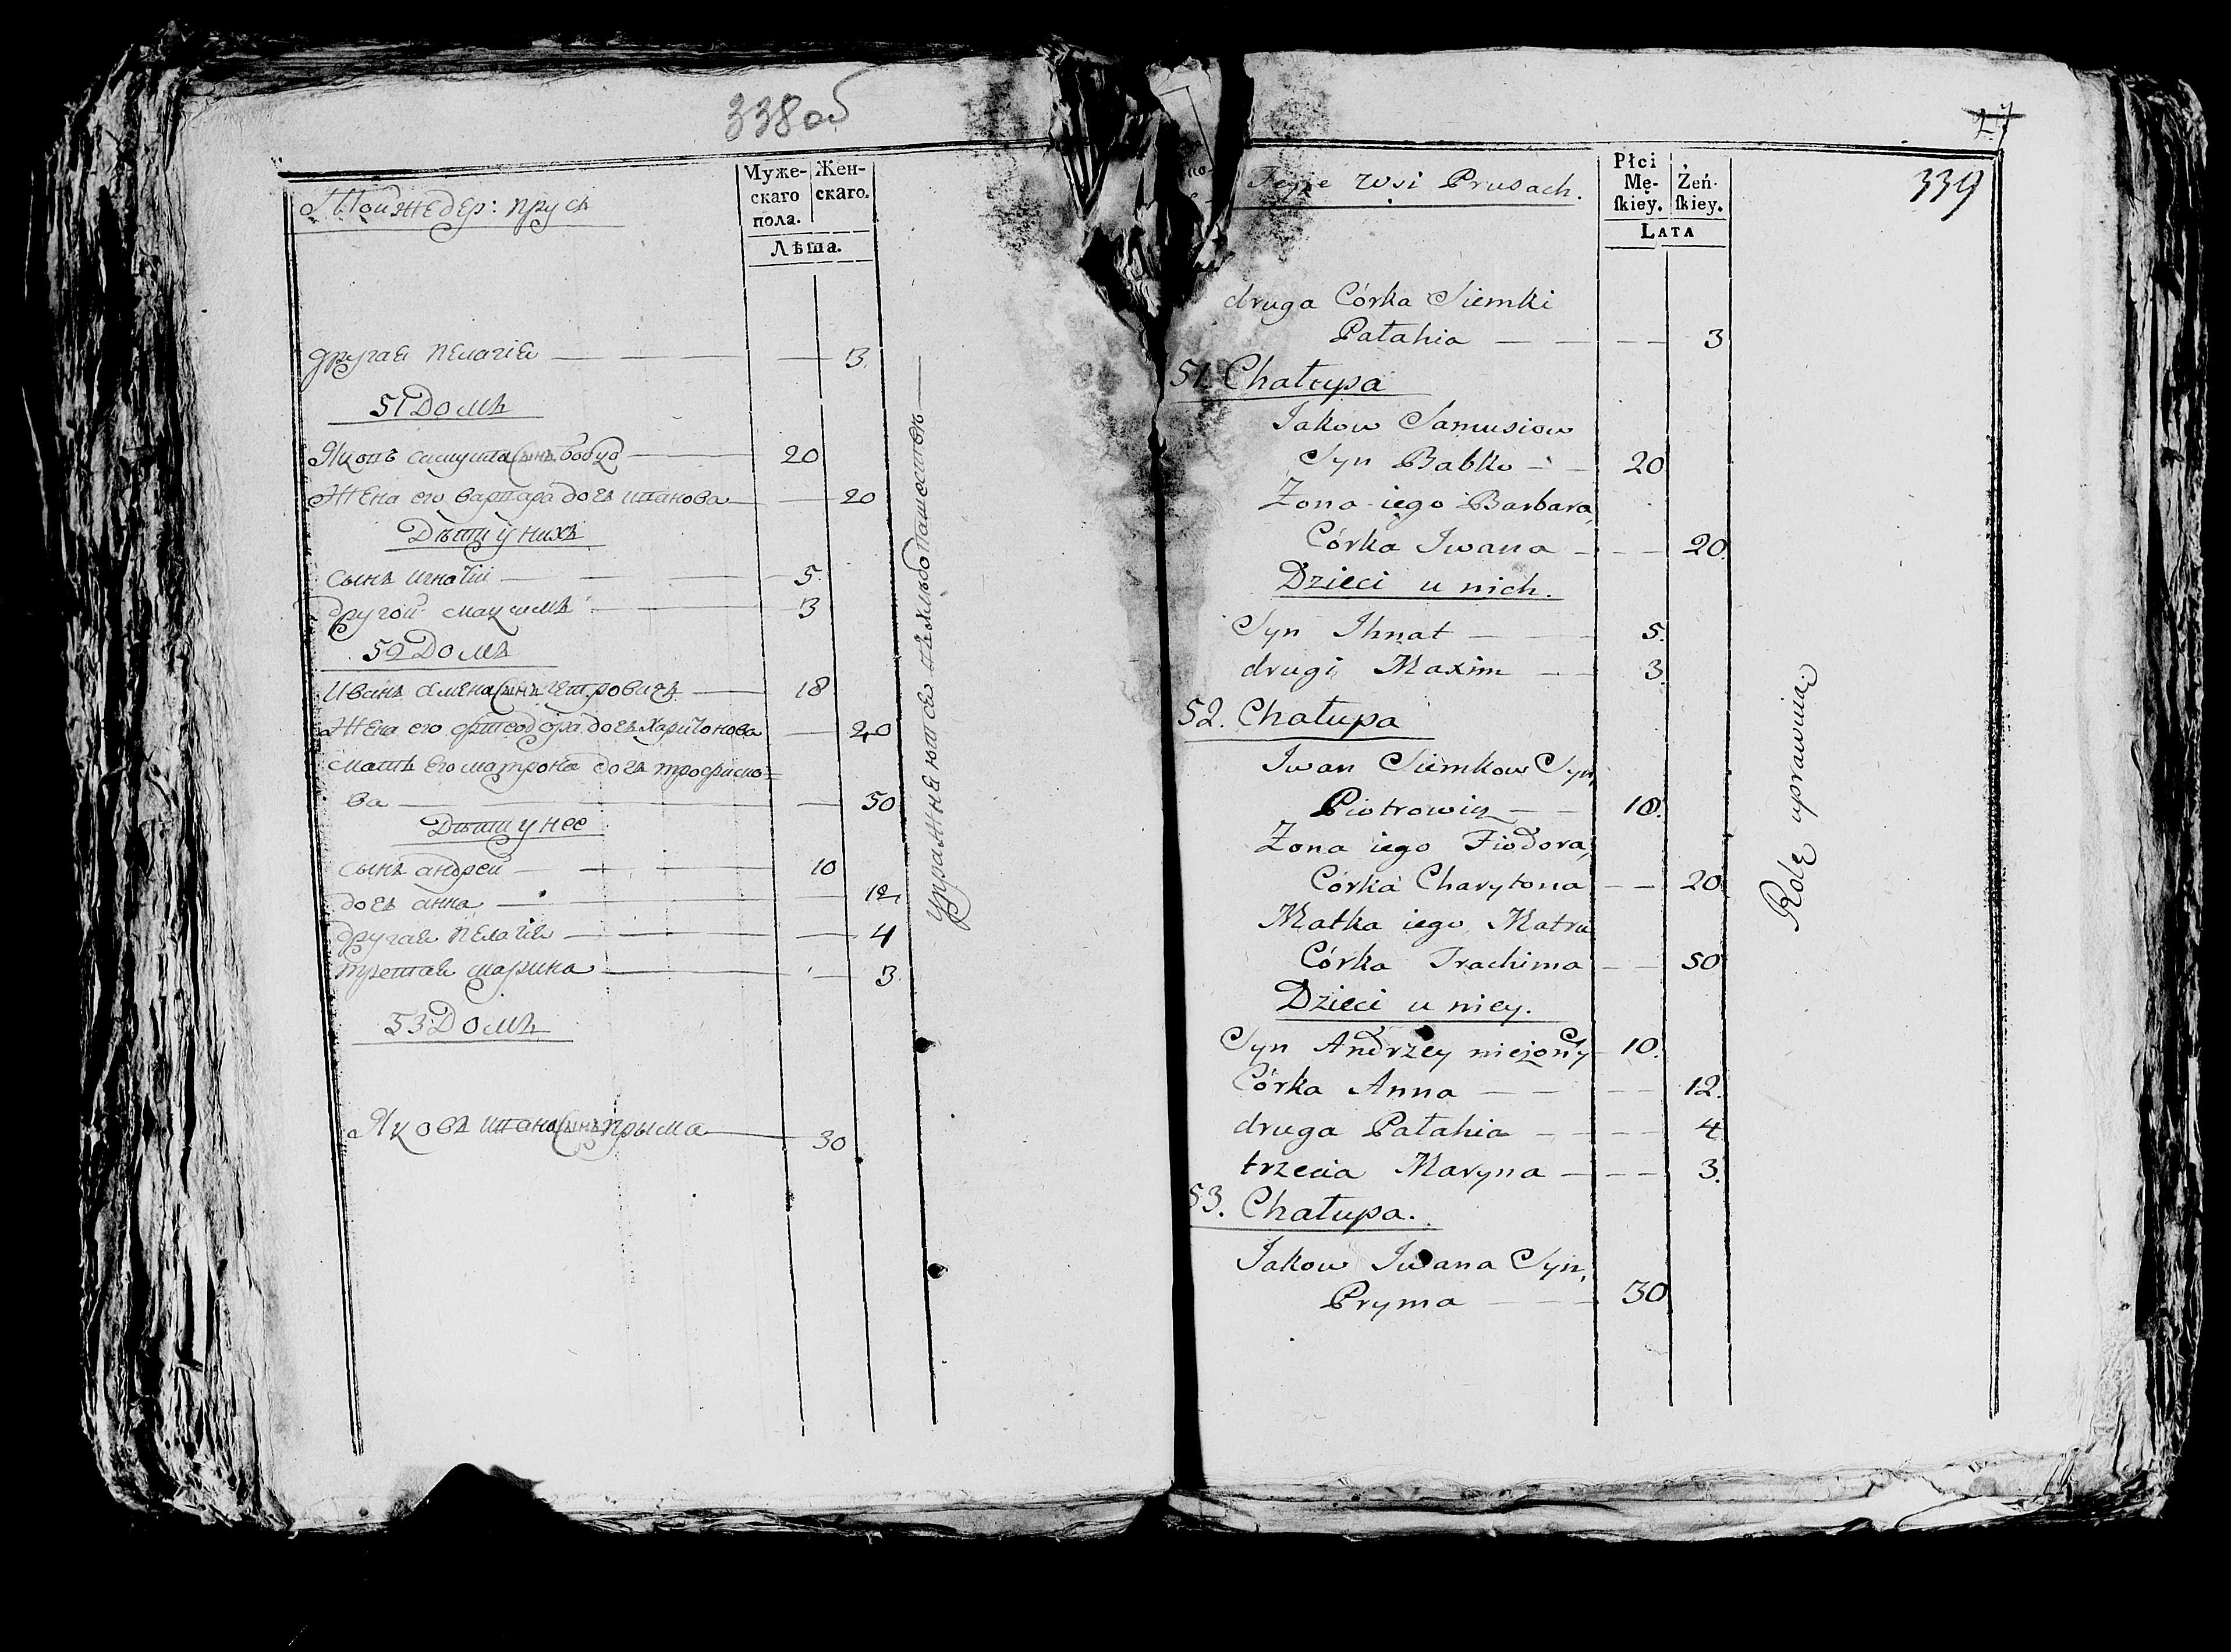 338об
Тойже дер: прусъ
Муже-
скаго
пола.
Жен-
скаго.
Лѣта.
другая пелагія 3.
51 Домъ
Яковъ самуила сынъ бобко 20
Жена его варвара дочь иванова 20
Дѣти у нихъ
сынъ игнатій 5.
другой максимъ 3
52 Домъ
Иванъ семена сынъ петровичъ 18
Жена его феодора дочь харитонова 20
мать его матрона дочь трофимо=
ва 50
Дѣти у нее
сынъ андрей 10
дочь анна 12
другая пелагія 4
третая марина 3.
53 Домъ
Яковъ ивана сынъ прыма 30
упражняются въ хлѣбопашествѣ
27
339
Teyże wsi Prusach.
Płci
Mę-
skiey.
Żeń-
skiey.
LATA
druga Córka Siemki
Pałahia 3
51. Chałupa
Jakow Samusiow
Syn Babko 20
Zona iego Barbara,
Córka Iwana 20.
Dzieci u nich.
Syn Ihnat 5.
drugi Maxim 3.
52. Chałupa
Iwan Siemkow Syn,
Piotrowicz 18.
Zona iego Fiodora,
Córka Charytona 20
Matka iego Matru
Córka Trachima 50
Dzieci u niey.
Syn Andrzey nieżony 10.
Córka Anna 12.
druga Pałahia 4.
trzecia Maryna 3.
53. Chałupa.
Jakow Iwana Syn,
Pryma 30
Rolę uprawuia